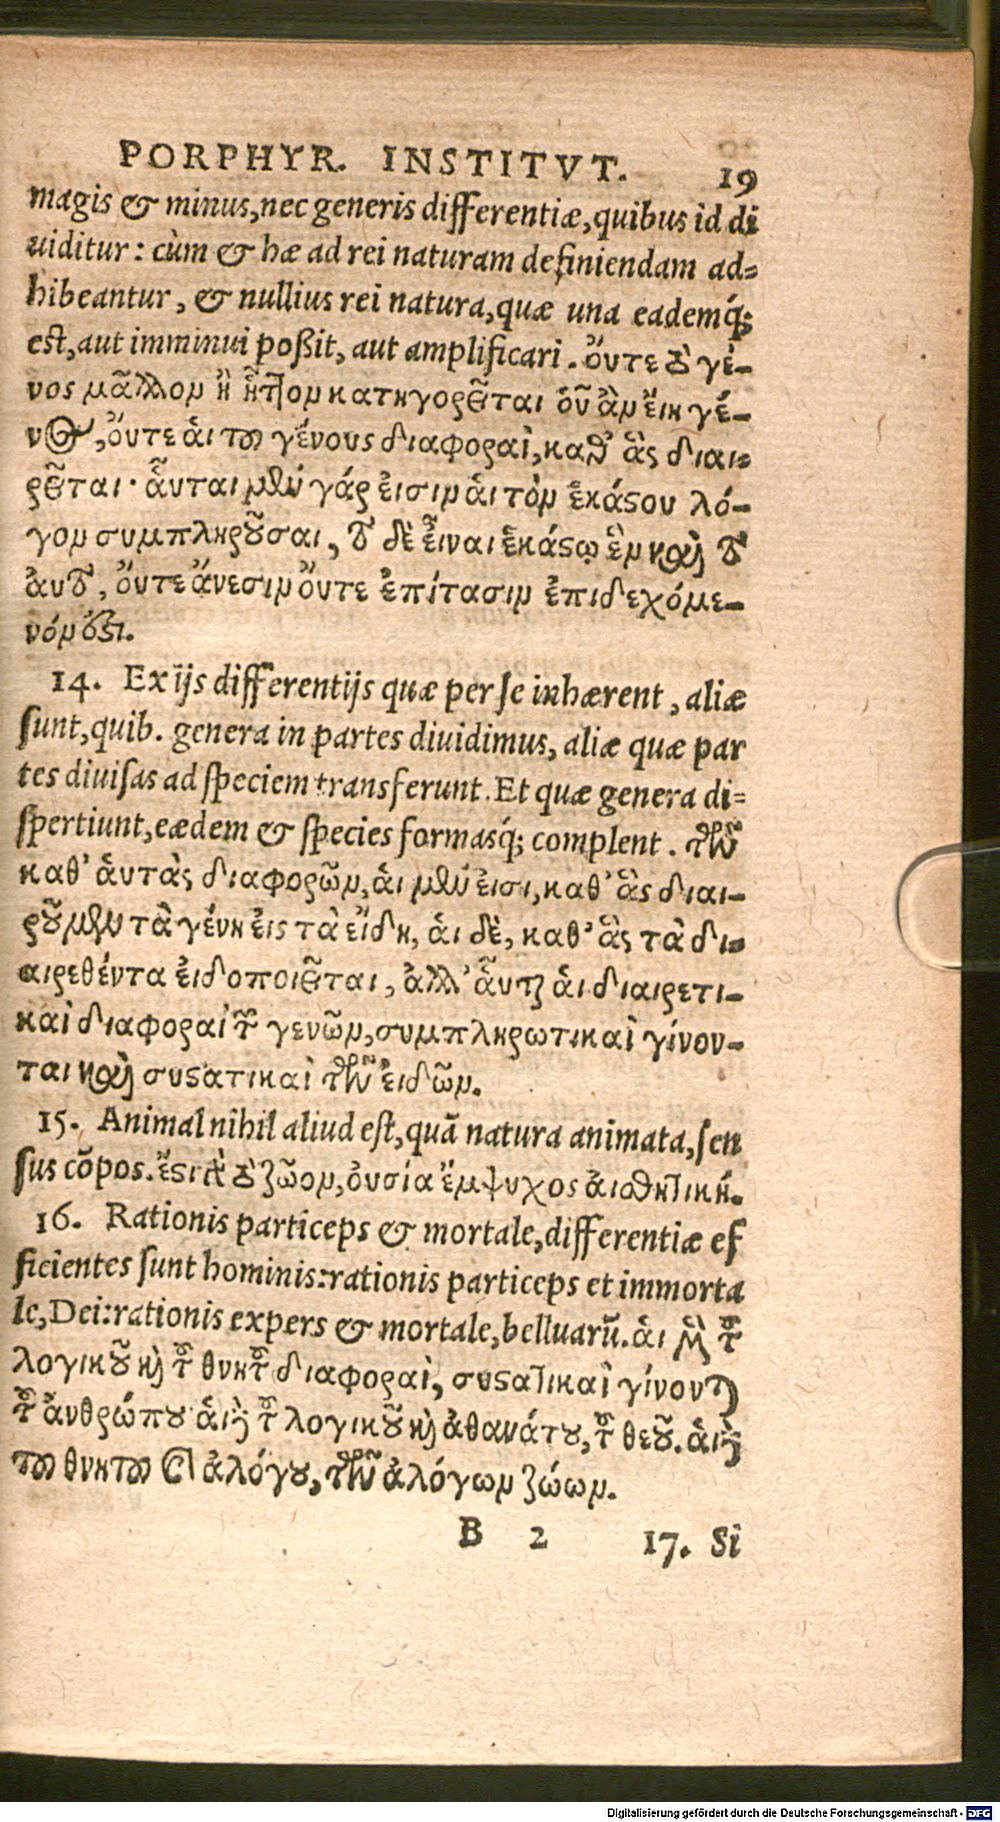 PORPHYR. INSTITVT. 19
magis & minus, nec generis differentiæ, quibus id di
uiditur: cùm & hæ ad rei naturam definiendam ad-
hibeantur, & nullius rei natura, quæ una eademq́;
est, aut imminui poßit, aut amplificari. ὄυτε τὸ γέ-
νος μᾶλλον ἢ ἧτ]ον κατηγορεῖται ὁῦ ἂν ἔιη γέ-
νος, ὄυτε ἁι τοῦ γένους διαφοραὶ, καθ' ἃς διαι-
ρεῖται· ἇυται μὲν γάρ ἐισιν ἁι τὸν ἑκάστου λό-
γον συμπληροῦσαι, τὸ δὲ ἶειναι ἑκάστῳ ἓν καὶ τὸ
ἀυτὸ, ὄυτε ἄνεσιν ὄυτε ἐπίτασιν ἐπιδεχόμε-
νόν ὅζι.
14. Ex ijs differentijs quæ per se inhærent, aliæ
sunt, quib. genera in partes diuidimus, aliæ quæ par
tes diuisas ad speciem transferunt. Et quæ genera di-
spertiunt, eædem & species formasq́; complent. τῶν
καθ' ἁυτὰς διαφορῶν, ἁι μὲν ἐισι, καθ' ἃς διαι-
ροῦμεν τὰ γένη ἐις τὰ ἔιδη, ἁι δὲ, καθ' ἃς τὰ δι-
αιρεθέντα ἐιδοποιεῖται, ἀλλ' ἇυται ἁι διαιρετι-
καὶ διαφοραὶ τῶν γενῶν, συμπληρωτικαὶ γίνον-
ται καὶ συστατικαὶ τῶν ἐιδῶν.
15. Animal nihil aliud est, quā natura animata, sen
sus cōpos. ἔστι δὲ τὸ ζῶον, ὀυσία ἔμψυχος ἀισθητική.
16. Rationis particeps & mortale, differentiæ ef
ficientes sunt hominis: rationis particeps et immorta
le, Dei: rationis expers & mortale, belluarū. ἁι μὲν τοῦ
λογικοῦ καὶ τοῦ θνητοῦ διαφοραὶ, συστατικαὶ γίνονται
τοῦ ἀνθρώπου· ἁι δὲ τοῦ λογικοῦ καὶ ἀθανάτου, τοῦ θεοῦ. ἁι δὲ
τοῦ θνητοῦ καὶ ἀλόγου, τῶν ἀλόγων ζώων.
B 2 17. Si
Digitalisierung gefördert durch die Deutsche Forschungsgemeinschaft - DFG